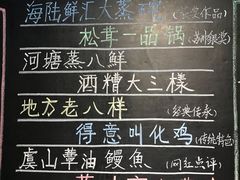 海陆鲜汇大蒸
松茸一品锅(苏州银奖)
河塘蒸八鲜
酒糟大三樣
地方老八样(经典传承)
得意叫化鸡(传统特色)
虞山蕈油鳗魚(网红点评)